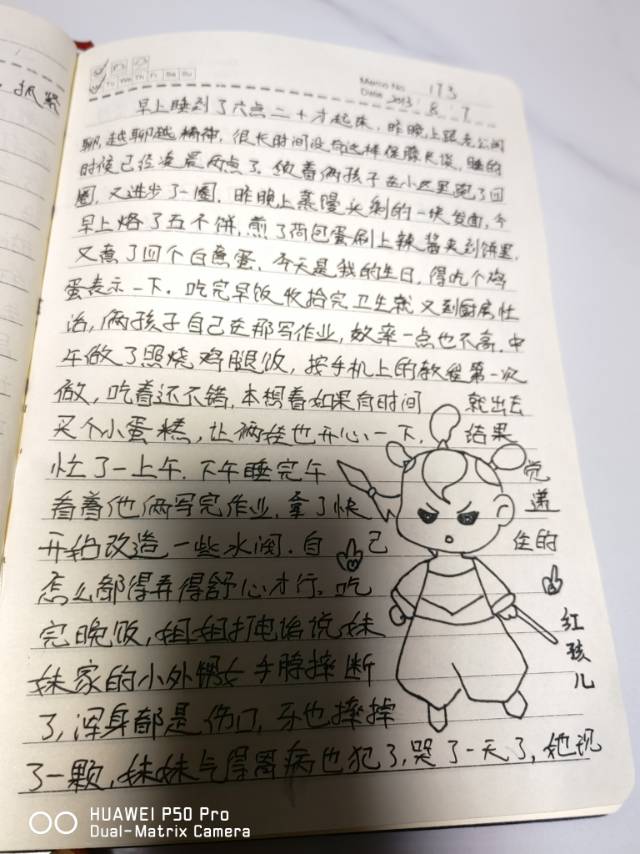 Memo No. 173
Tu We Th Fr Sa Su
Date 2023 8 7
早上睡到了六点二十才起床,昨晚上跟老公闲
聊,越聊越精神,很长时间没有这样促膝长谈,睡的
时候已经凌晨两点了,领着俩孩子在小区里跑了四
圈,又进步了一圈.昨晚上蒸馒头剩的一块发面,今
早上烙了五个饼,煎了荷包蛋刷上辣酱夹到饼里,
又煮了四个白煮蛋.今天是我的生日,得吃个鸡
蛋表示一下.吃完早饭收拾完卫生就又到厨房忙
活,俩孩子自己在那写作业,效率一点也不高.中
午做了照烧鸡腿饭,按手机上的教程第一次
做,吃着还不错.本想着如果有时间就出去
买个小蛋糕,让俩娃也开心一下,结果
忙了一上午.下午睡完午觉
看着他俩写完作业,拿了快递
开始改造一些水阀.自己住的
怎么都得弄得舒心才行.吃
完晚饭,姐姐打电话说妹
妹家的小外甥女手脖摔断
了,浑身都是伤口,牙也摔掉
了一颗,妹妹气得胃病也犯了,哭了一天了,她说
红孩儿
HUAWEI P50 Pro
Dual-Matrix Camera